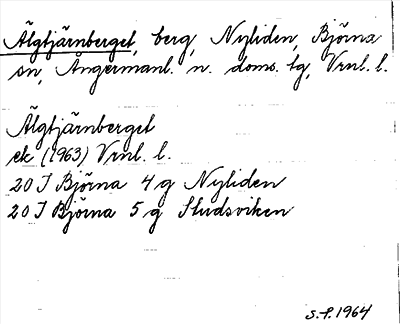 Älgtjärnberget, berg, Nyliden, Björna
sn, Ångermanl. n. doms. tg, Vrnl. l.
Älgtjärnberget
ek (1963) Vrnl. l.
20 I Björna 4 g Nyliden
20 I Björna 5 g Studsviken
S.F. 1964